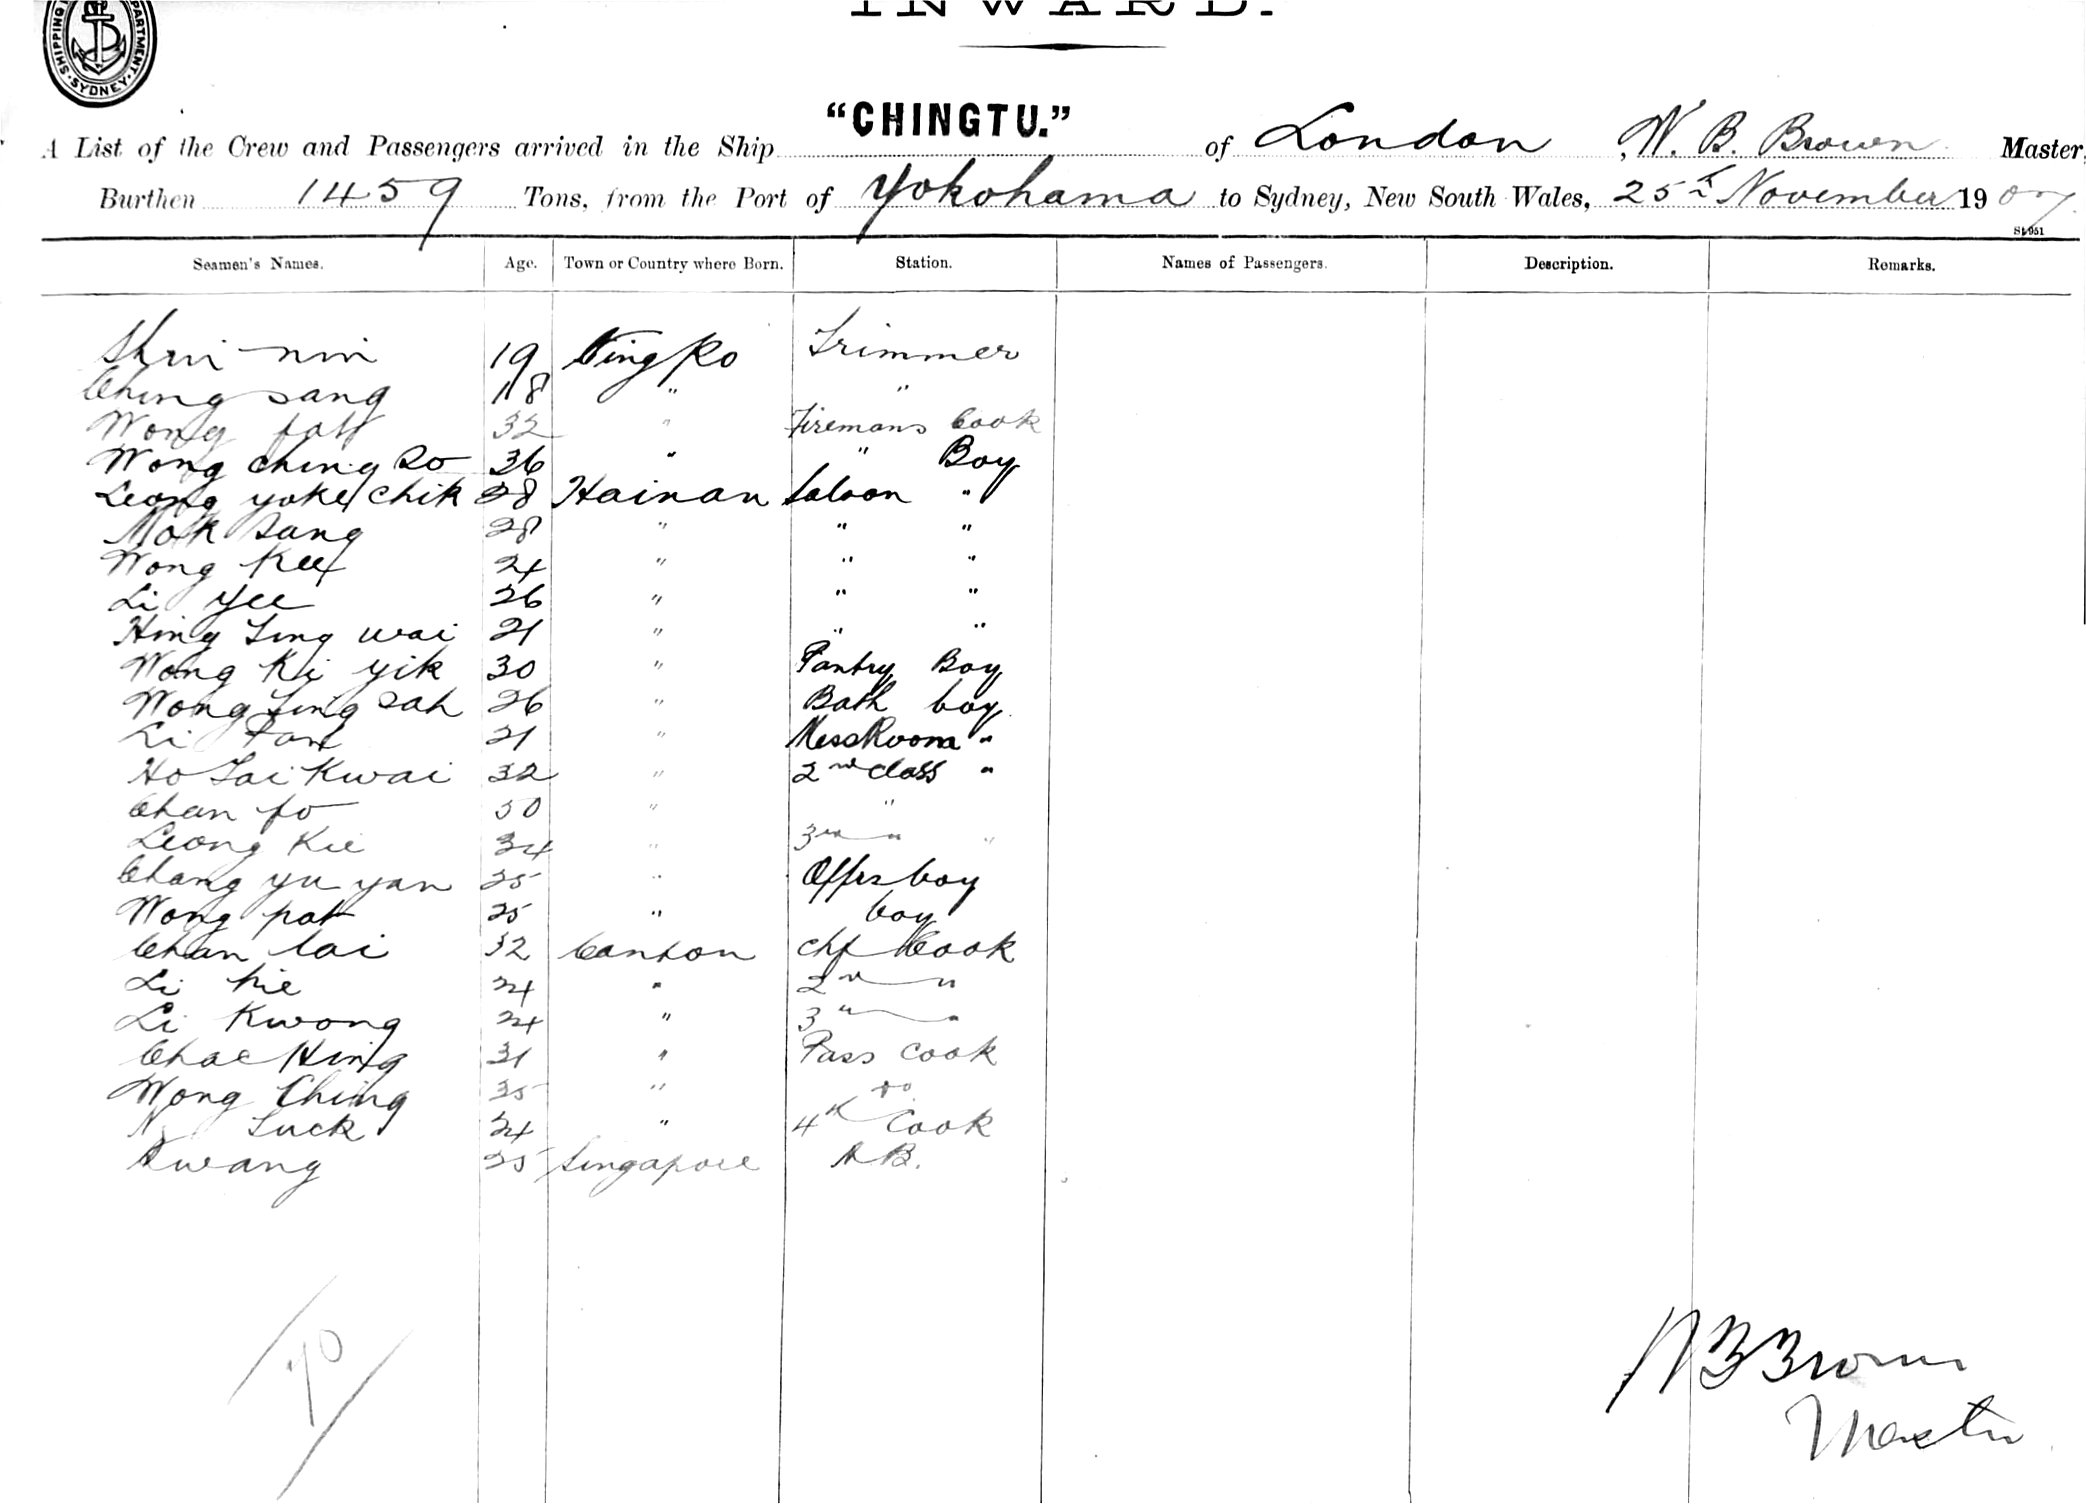 INWARD.
SHIPPING DEPARTMENT. SYDNEY.
"CHINGTU."
A List of the Crew and Passengers arrived in the Ship of London W. B. Brown Master,
Burthen 1459 Tons, from the Port of Yokohama to Sydney, New South Wales, 25th November 1907.
St 951
Seamen's Names. Age. Town or Country where Born. Station. Names of Passengers. Description. Remarks.
19 Ning Po Trimmer
Ching Sang 18 " "
Wong fat 32 " Firemans Cook
Wong Ching So 36 " " Boy
Leong yoke Chik 28 Hainan Saloon "
Mok Sang 28 " " "
Wong Kee 24 " " "
Li Yee 26 " " "
Hing Ling wai 21 " " "
Wong Ki yik 30 " Pantry Boy
Wong Ling Sah 26 " Bath boy
Li 21 " MessRoom "
Ho Tai Kwai 32 " 2nd class "
Chan fo 50 " "
Leong Kie 34 " 3rd " "
Chang yu yan 25 " Offrs boy
Wong pat 25 " boy
Chan lai 32 Canton Chf Cook
Li Kie 24 " 2nd "
Li Kwong 24 " 3rd "
Chae Hing 31 " Pass Cook
Wong Ching 35 " do
Luck 24 " 4th Cook
Awang 25 Singapore AB.
70
WB Brown
Master